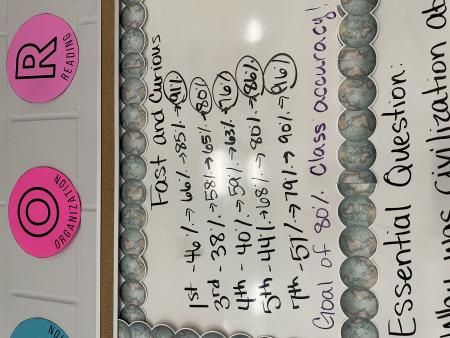 R
READING
O
ORGANIZATION
Fast and Curious
1st - 46% → 66% → 85% → 91%
3rd - 38% → 58% → 65% → 80%
4th - 40% → 59% → 63% → 76%
5th - 44% → 68% → 80% → 86%
7th - 51% → 79% → 90% → 96%
Goal of 80% Class accuracy!
Essential Question:
Why was civilization ab